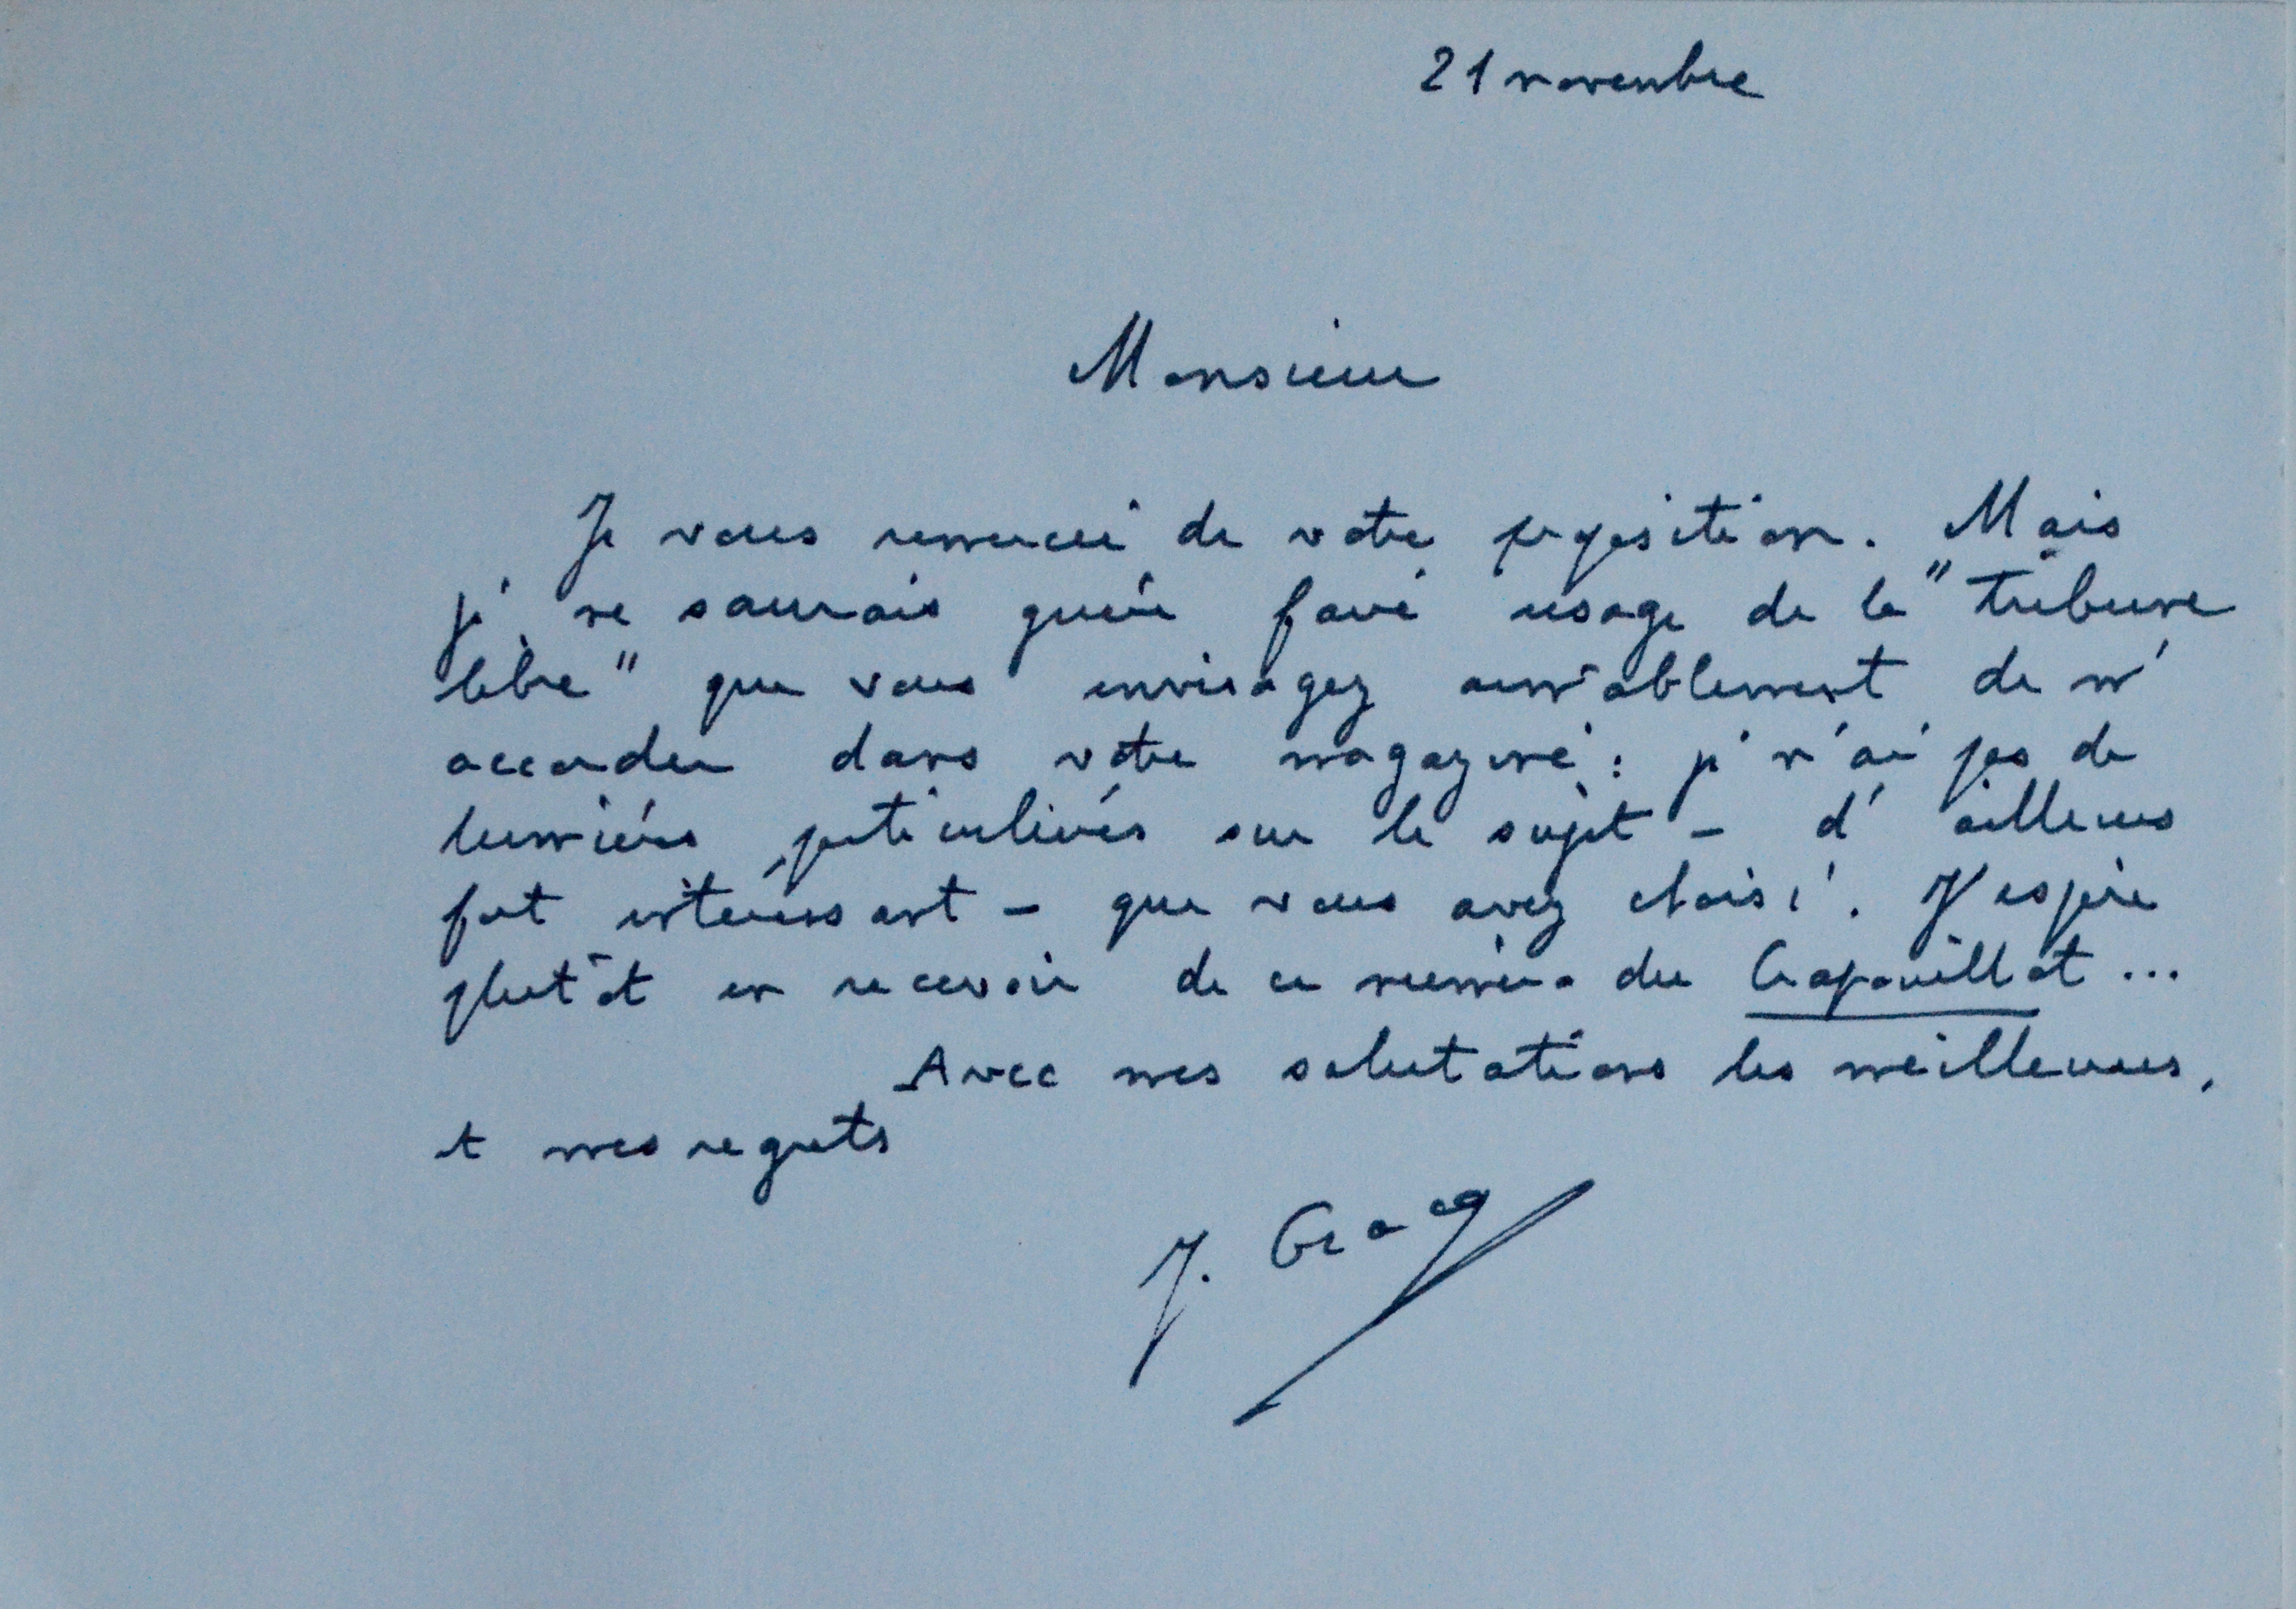 21 novembre
Monsieur
Je vous remercie de votre proposition. Mais
je ne saurais guère faire usage de la "tribune
libre" que vous envisagez aimablement de m'
accorder dans votre magazine : je n'ai pas de
lumières particulières sur le sujet - d'ailleurs
fort intéressant - que vous avez choisi. J'espère
plutôt en recevoir de ce numéro du Crapouillot...
Avec mes salutations les meilleures,
et mes regrets
J. Gracq